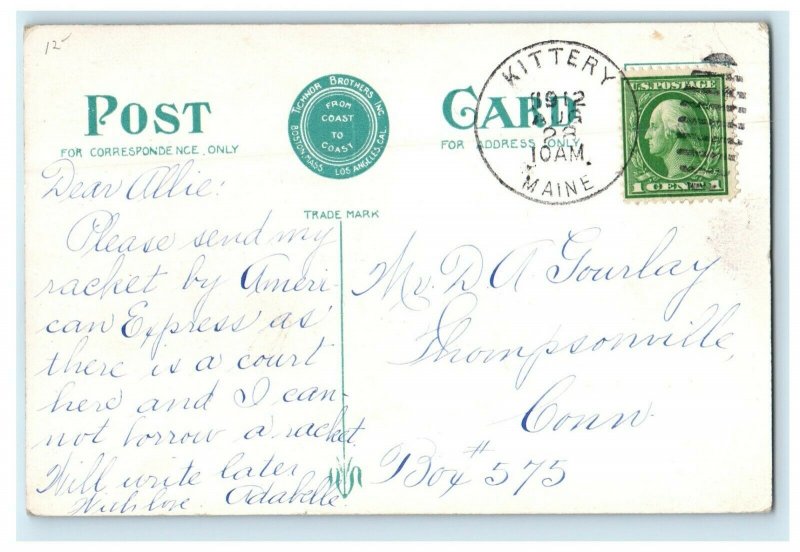 12
POST
FOR CORRESPONDENCE ONLY
TICHNOR BROTHERS INC.
FROM
COAST
TO
COAST
BOSTON, MASS. LOS ANGELES, CAL.
TRADE MARK
CARD
FOR ADDRESS ONLY
KITTERY
1912
AUG
28
10AM.
MAINE
U.S. POSTAGE
1 CENT 1
Dear Allie:
Please send my
racket by Ameri-
can Express as
there is a court
here and I can-
not borrow a racket.
Will write later
With love Adabelle
Mr. D A Gourlay
Thompsonville,
Conn.
Box # 575